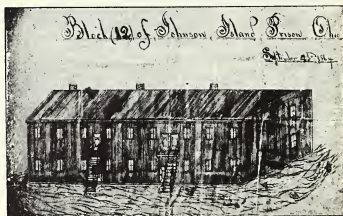 Block (12) of Johnson, Island Prison, Ohio
September 25th 1864